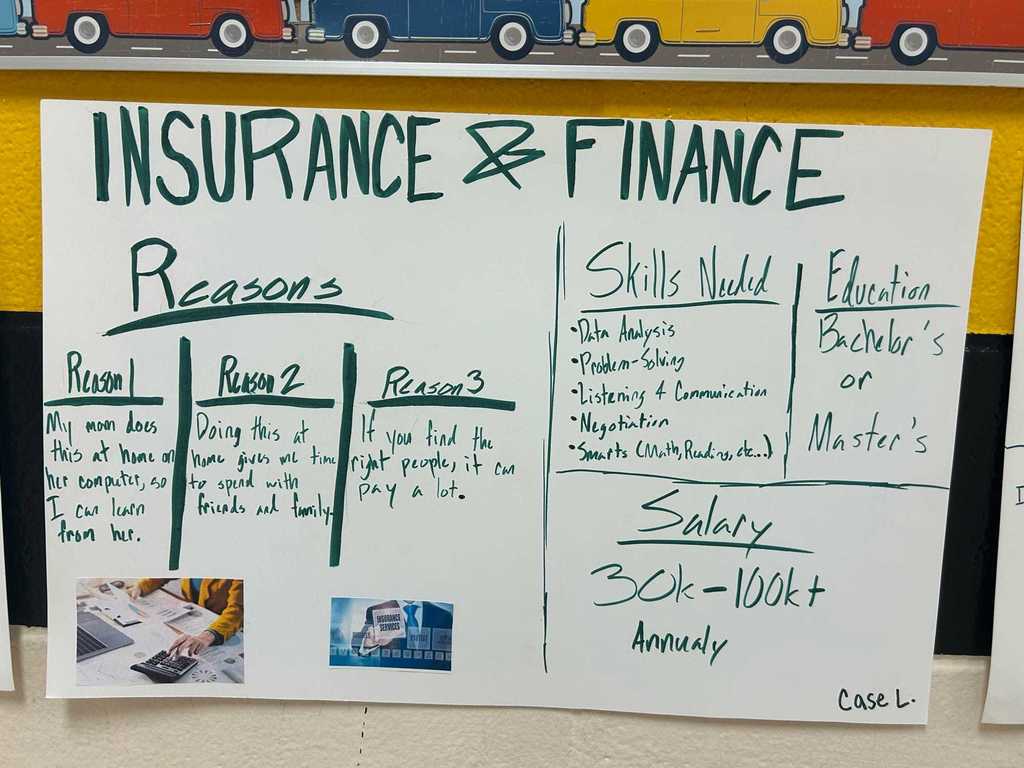 INSURANCE & FINANCE
Reasons
Reason 1
My mom does
this at home on
her computer, so
I can learn
from her.
Reason 2
Doing this at
home gives me time
to spend with
friends and family.
Reason 3
If you find the
right people, it can
pay a lot.
Skills Needed
•Data Analysis
•Problem-Solving
•Listening & Communication
•Negotiation
•Smarts (Math, Reading, etc...)
Education
Bachelor's
or
Master's
Salary
30k-100k+
Annualy
INSURANCE
SERVICES
Case L.